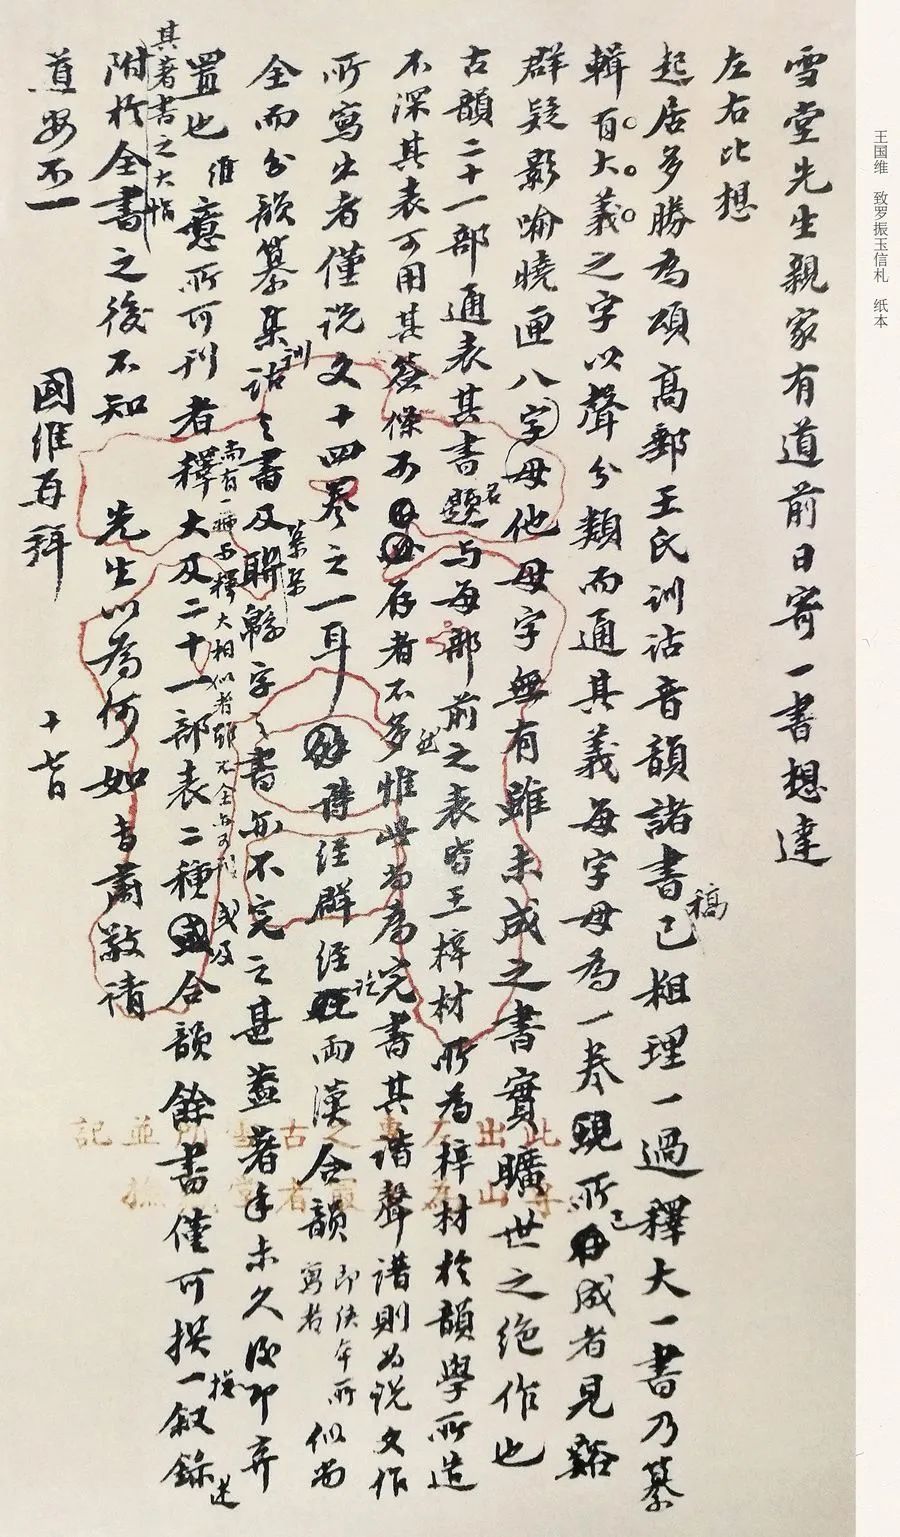 王国维 致罗振玉信札 纸本
雪堂先生親家有道前日寄一書想達
左右比想
起居多勝為頌高郵王氏訓詁音韻諸書稿已粗理一過釋大一書乃纂
輯有大義之字以聲分類而通其義每字母為一卷所已成者見谿
群疑影喻曉匣八字母他母字無有雖未成之書實曠世之絕作也
古韻二十一部通表其書名與每部前之表皆王梓材所為梓材於韻學所造
不深其表可用其簽條不存者不多然惟此為完書其諧聲譜則為說文作
所寫出者僅說文十四卷之一耳詩經群經兩漢合韻即佚年所寫者似尚
全而分韻纂集訓詁之書及聯緜字之書亦不完之甚蓋著手未久後即弃
置也維意所可刊者釋大及二十一部表二種或及合韻餘書僅可撰一叙錄述
尚有一種與釋大相似者雖不全亦可刊
其著書之大恉
附於全書之後不知 先生以為何如專肅敬請
道安不一
國維再拜 十七日